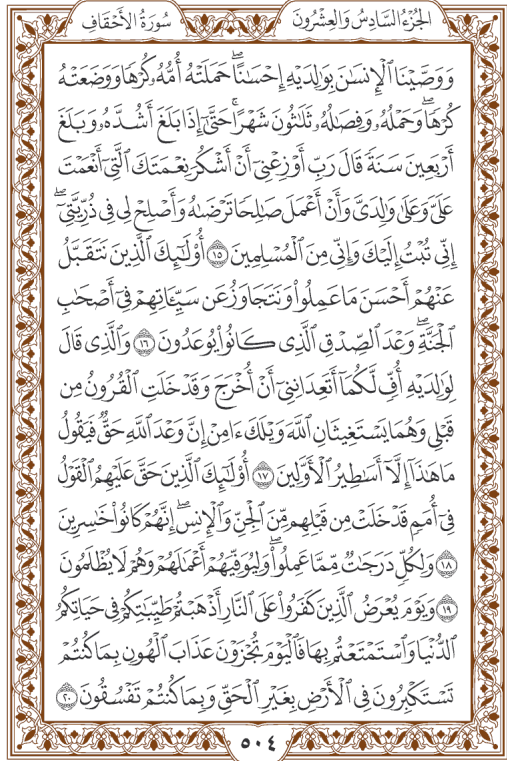 الجزء السادس والعشرون
سورة الأحقاف
وَوَصَّيْنَا ٱلْإِنسَٰنَ بِوَٰلِدَيْهِ إِحْسَٰنًاۖ حَمَلَتْهُ أُمُّهُۥ كُرْهًا وَوَضَعَتْهُ
كُرْهًاۖ وَحَمْلُهُۥ وَفِصَٰلُهُۥ ثَلَٰثُونَ شَهْرًاۚ حَتَّىٰٓ إِذَا بَلَغَ أَشُدَّهُۥ وَبَلَغَ
أَرْبَعِينَ سَنَةً قَالَ رَبِّ أَوْزِعْنِىٓ أَنْ أَشْكُرَ نِعْمَتَكَ ٱلَّتِىٓ أَنْعَمْتَ
عَلَىَّ وَعَلَىٰ وَٰلِدَىَّ وَأَنْ أَعْمَلَ صَٰلِحًا تَرْضَىٰهُ وَأَصْلِحْ لِى فِى ذُرِّيَّتِىٓۖ
إِنِّى تُبْتُ إِلَيْكَ وَإِنِّى مِنَ ٱلْمُسْلِمِينَ ١٥ أُو۟لَٰٓئِكَ ٱلَّذِينَ نَتَقَبَّلُ
عَنْهُمْ أَحْسَنَ مَا عَمِلُوا۟ وَنَتَجَاوَزُ عَن سَيِّـَٔاتِهِمْ فِىٓ أَصْحَٰبِ
ٱلْجَنَّةِۖ وَعْدَ ٱلصِّدْقِ ٱلَّذِى كَانُوا۟ يُوعَدُونَ ١٦ وَٱلَّذِى قَالَ
لِوَٰلِدَيْهِ أُفٍّ لَّكُمَآ أَتَعِدَانِنِىٓ أَنْ أُخْرَجَ وَقَدْ خَلَتِ ٱلْقُرُونُ مِن
قَبْلِى وَهُمَا يَسْتَغِيثَانِ ٱللَّهَ وَيْلَكَ ءَامِنْ إِنَّ وَعْدَ ٱللَّهِ حَقٌّ فَيَقُولُ
مَا هَٰذَآ إِلَّآ أَسَٰطِيرُ ٱلْأَوَّلِينَ ١٧ أُو۟لَٰٓئِكَ ٱلَّذِينَ حَقَّ عَلَيْهِمُ ٱلْقَوْلُ
فِىٓ أُمَمٍ قَدْ خَلَتْ مِن قَبْلِهِم مِّنَ ٱلْجِنِّ وَٱلْإِنسِۖ إِنَّهُمْ كَانُوا۟ خَٰسِرِينَ
١٨ وَلِكُلٍّ دَرَجَٰتٌ مِّمَّا عَمِلُوا۟ۖ وَلِيُوَفِّيَهُمْ أَعْمَٰلَهُمْ وَهُمْ لَا يُظْلَمُونَ
١٩ وَيَوْمَ يُعْرَضُ ٱلَّذِينَ كَفَرُوا۟ عَلَى ٱلنَّارِ أَذْهَبْتُمْ طَيِّبَٰتِكُمْ فِى حَيَاتِكُمُ
ٱلدُّنْيَا وَٱسْتَمْتَعْتُم بِهَا فَٱلْيَوْمَ تُجْزَوْنَ عَذَابَ ٱلْهُونِ بِمَا كُنتُمْ
تَسْتَكْبِرُونَ فِى ٱلْأَرْضِ بِغَيْرِ ٱلْحَقِّ وَبِمَا كُنتُمْ تَفْسُقُونَ ٢٠
٥٠٤